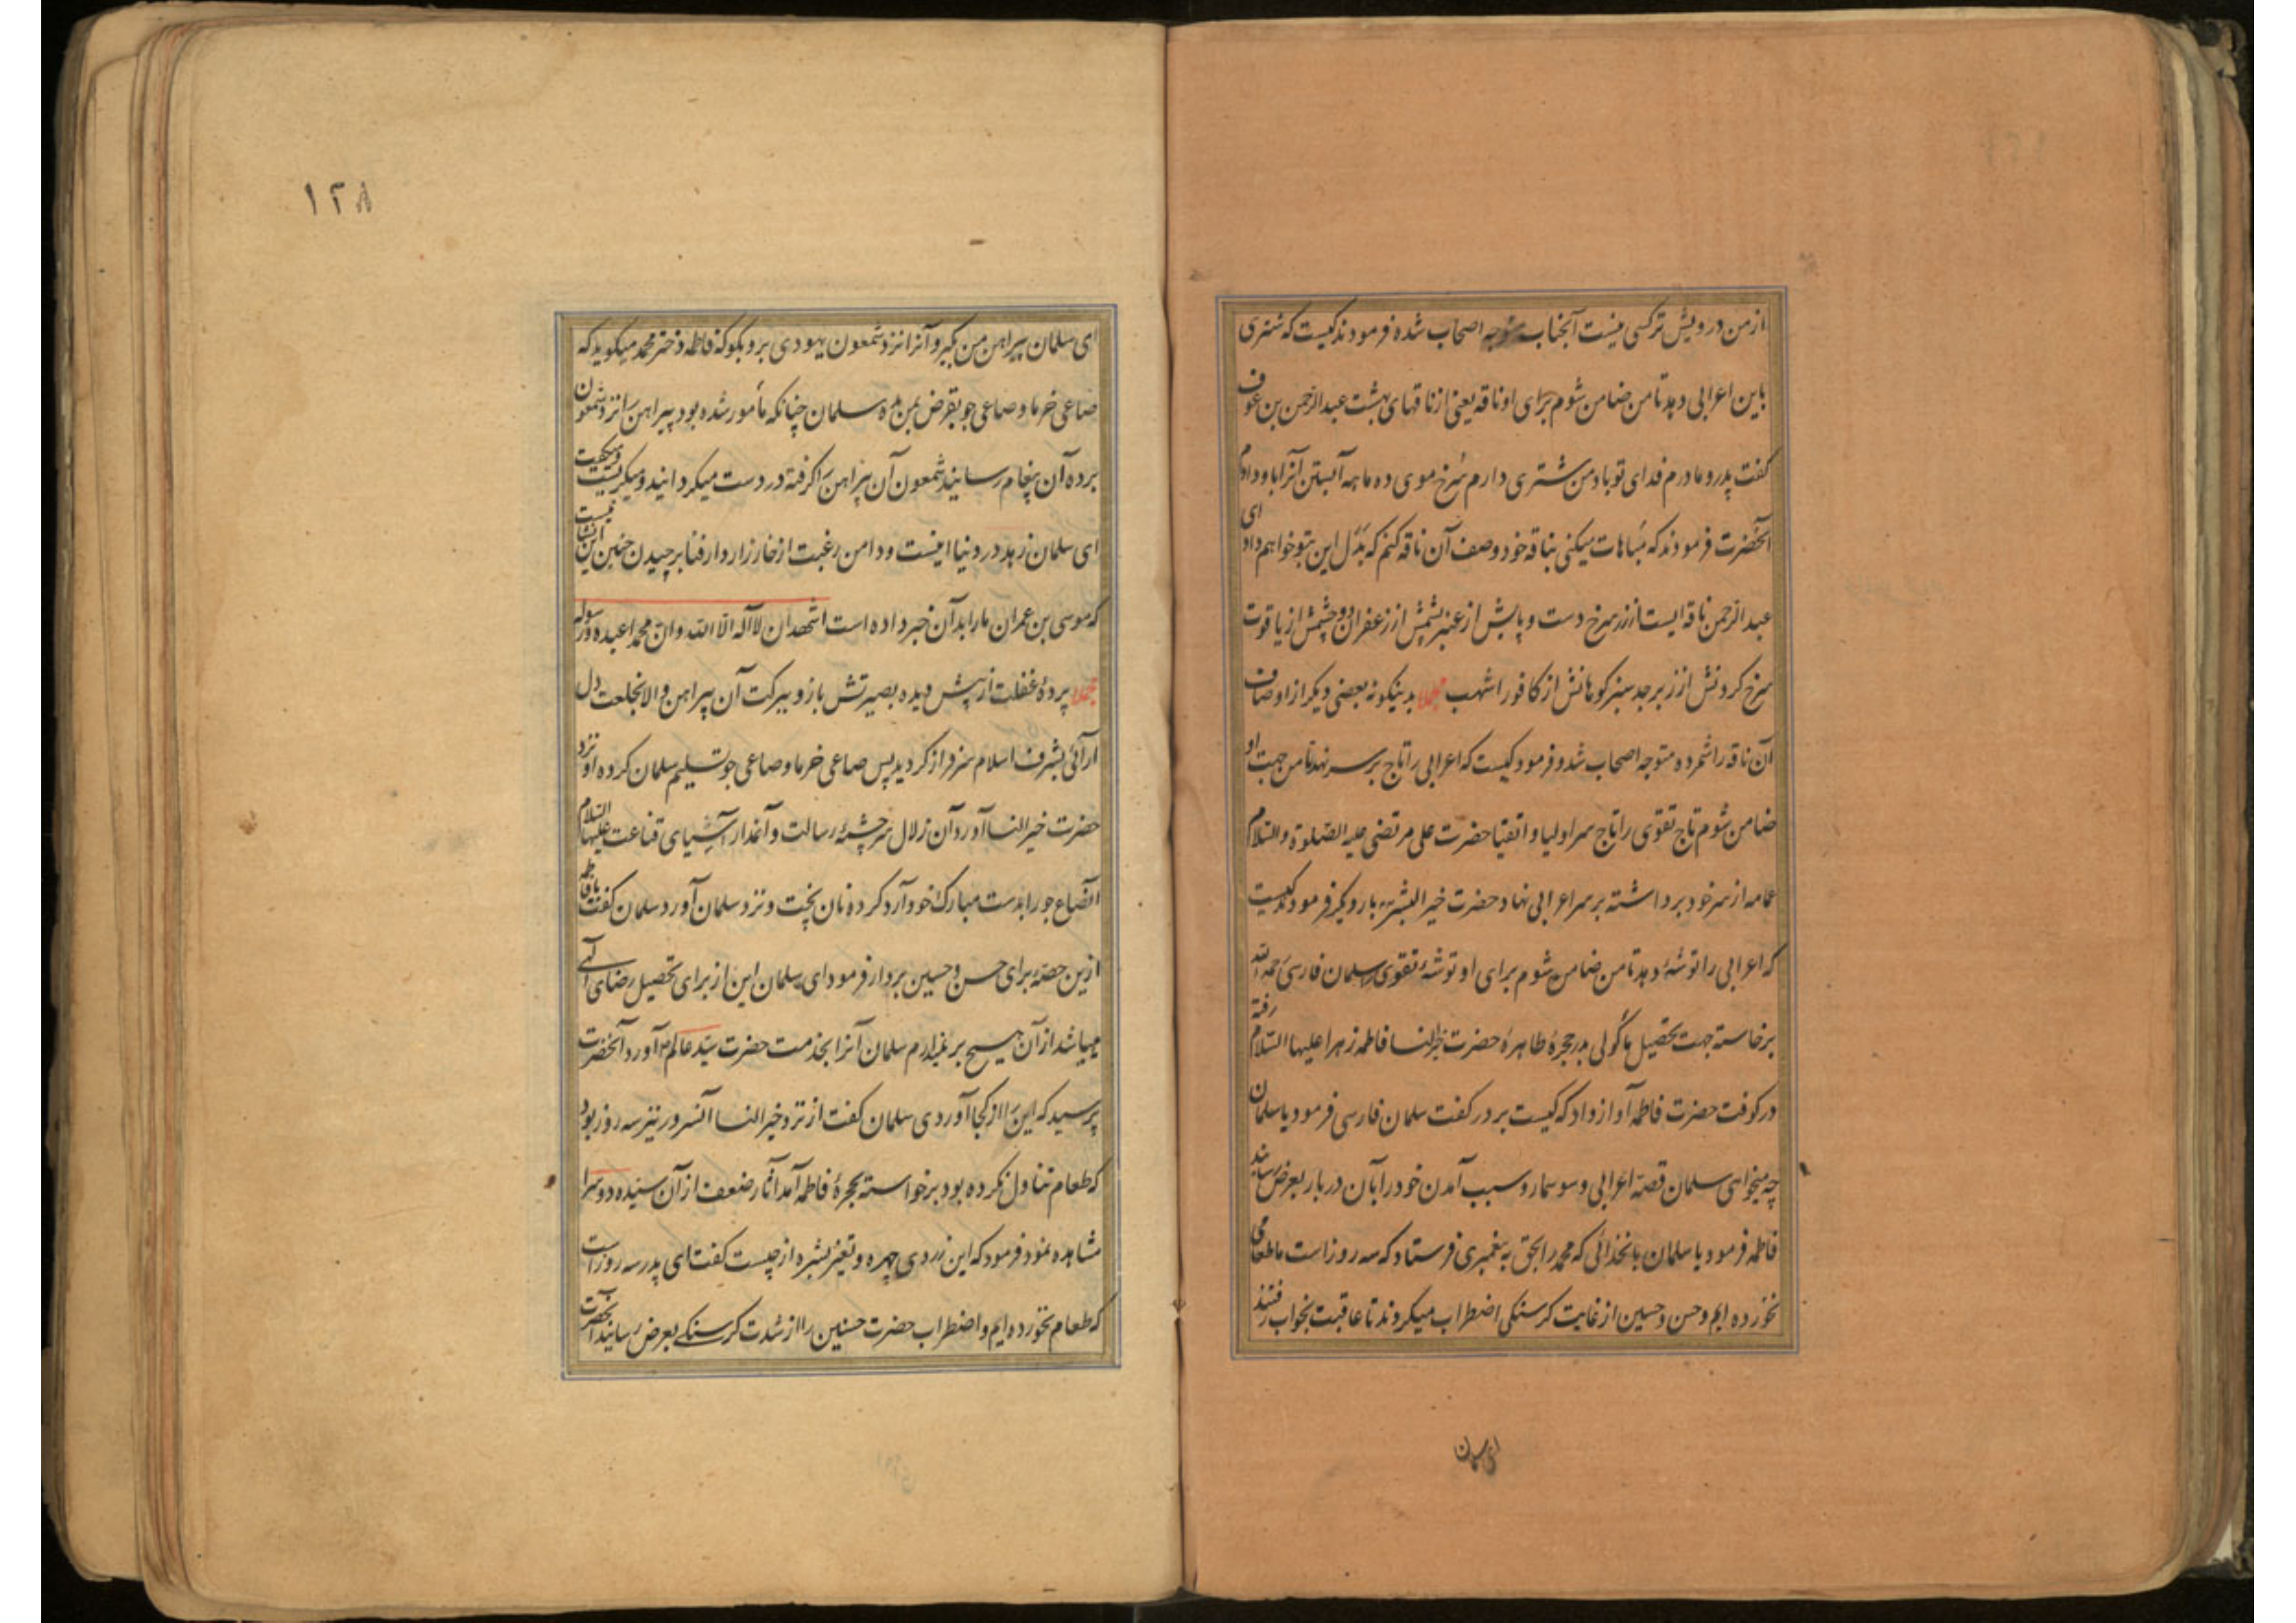 از من درویش ترکسی نیست آنجناب متوجه اصحاب شده فرمودند کیست که شتری
باین اعرابی دهد تا من ضامن شوم برای او ناقه یعنی از ناقهای بهشت عبدالرحمن بن عوف
کفت پدر و مادرم فدای تو باد من شتری دارم سرخ موی ده ماهه آبستن آنرا باو دادم
آنحضرت فرمودند که مباهات میکنی بناقه خود وصف آن ناقه کنم که بدل این بتو خواهم داد ای
عبدالرحمن ناقه ایست از زر سرخ دست و پایش از عنبر پشمش از زعفران و چشمش از یاقوت
سرخ کردنش از زبرجد سبز کوهانش از کافور اشهب مجملا بدینکونه بعضی دیکر از اوصاف
آن ناقه را شمرده متوجه اصحاب شد و فرمود کیست که اعرابی را تاج بر سر نهد تا من جهت او
ضامن شوم تاج تقوی را تاج سر اولیا و اتقیا حضرت علی مرتضی علیه الصلوة والسلام
عمامه از سر خود برداشته بر سر اعرابی نهاد حضرت خیر البشر بار دیکر فرمود کیست
که اعرابی را توشهٔ دهد تا من ضامن شوم برای او توشهٔ تقوی سلمان فارسی رحمه الله
برخاسته جهت تحصیل ماکولی بدر حجرهٔ طاهرهٔ حضرت خیر النسا فاطمه زهرا علیها السلام رفته
در کوفت حضرت فاطمه آواز داد که کیست بر در کفت سلمان فارسی فرمود یا سلمان
چه میخواهی سلمان قصه اعرابی و سوسمار و سبب آمدن خود را بآن دربار بعرض رسانید
فاطمه فرمود یا سلمان بانخدائی که محمد را بحق به پیغمبری فرستاد که سه روز است ما طعامی
نخورده ایم و حسن و حسین از غایت کرسنکی اضطراب میکردند تا عاقبت بخواب رفتند
ای سلمان
۱۲۸
ای سلمان پیراهن من بکیر و آنرا نزد شمعون یهودی بر و بکو که فاطمه دختر محمد میکوید که
صاعی خرما و صاعی جو بقرض بمن بده سلمان چنانکه مأمور شده بود پیراهن را نزد شمعون
برده آن پیغام رسانید شمعون آن پیراهن را کرفته در دست میکردانید و میکریست و میکفت
ای سلمان زهد در دنیا اینست و دامن رغبت از خارزار دار فنا برچیدن چنین این نشانیست
که موسی بن عمران ما را بدآن خبر داده است اشهد ان لا اله الا الله و ان محمدا عبده و رسوله
مجملا پردهٔ غفلت از پیش دیده بصیرتش باز و ببرکت آن پیراهن و الا بخلعت دل
ارائی بشرف اسلام سرفراز کردید پس صاعی خرما و صاعی جو تسلیم سلمان کرده او نزد
حضرت خیر النسا آورد آن زلال سرچشمهٔ رسالت و آغدار آسیای قناعت علیها السلام
آنصاع جو را بدست مبارک خود آرد کرده نان پخت و نزد سلمان آورد سلمان کفت یا فاطمه
ازین حصهٔ برای حسن و حسین بردار فرمود ای سلمان این از برای تحصیل رضای الهی
میباشد از آن هیچ بر نمیدارم سلمان آنرا بخدمت حضرت سید عالم آورد آنحضرت
پرسید که این را از کجا آوردی سلمان کفت از نزد خیر النسا آنسرور نیز سه روز بود
که طعام تناول نکرده بود برخواسته بحجرهٔ فاطمه آمد آثار ضعف از آن سیده دو سرا
مشاهده نمود فرمود که این زردی چهره و تغیر بشره از چیست کفت ای پدر سه روز است
که طعام نخورده ایم و اضطراب حضرت حسنین را از شدت کرسنکی بعرض رسانید آنحضرت